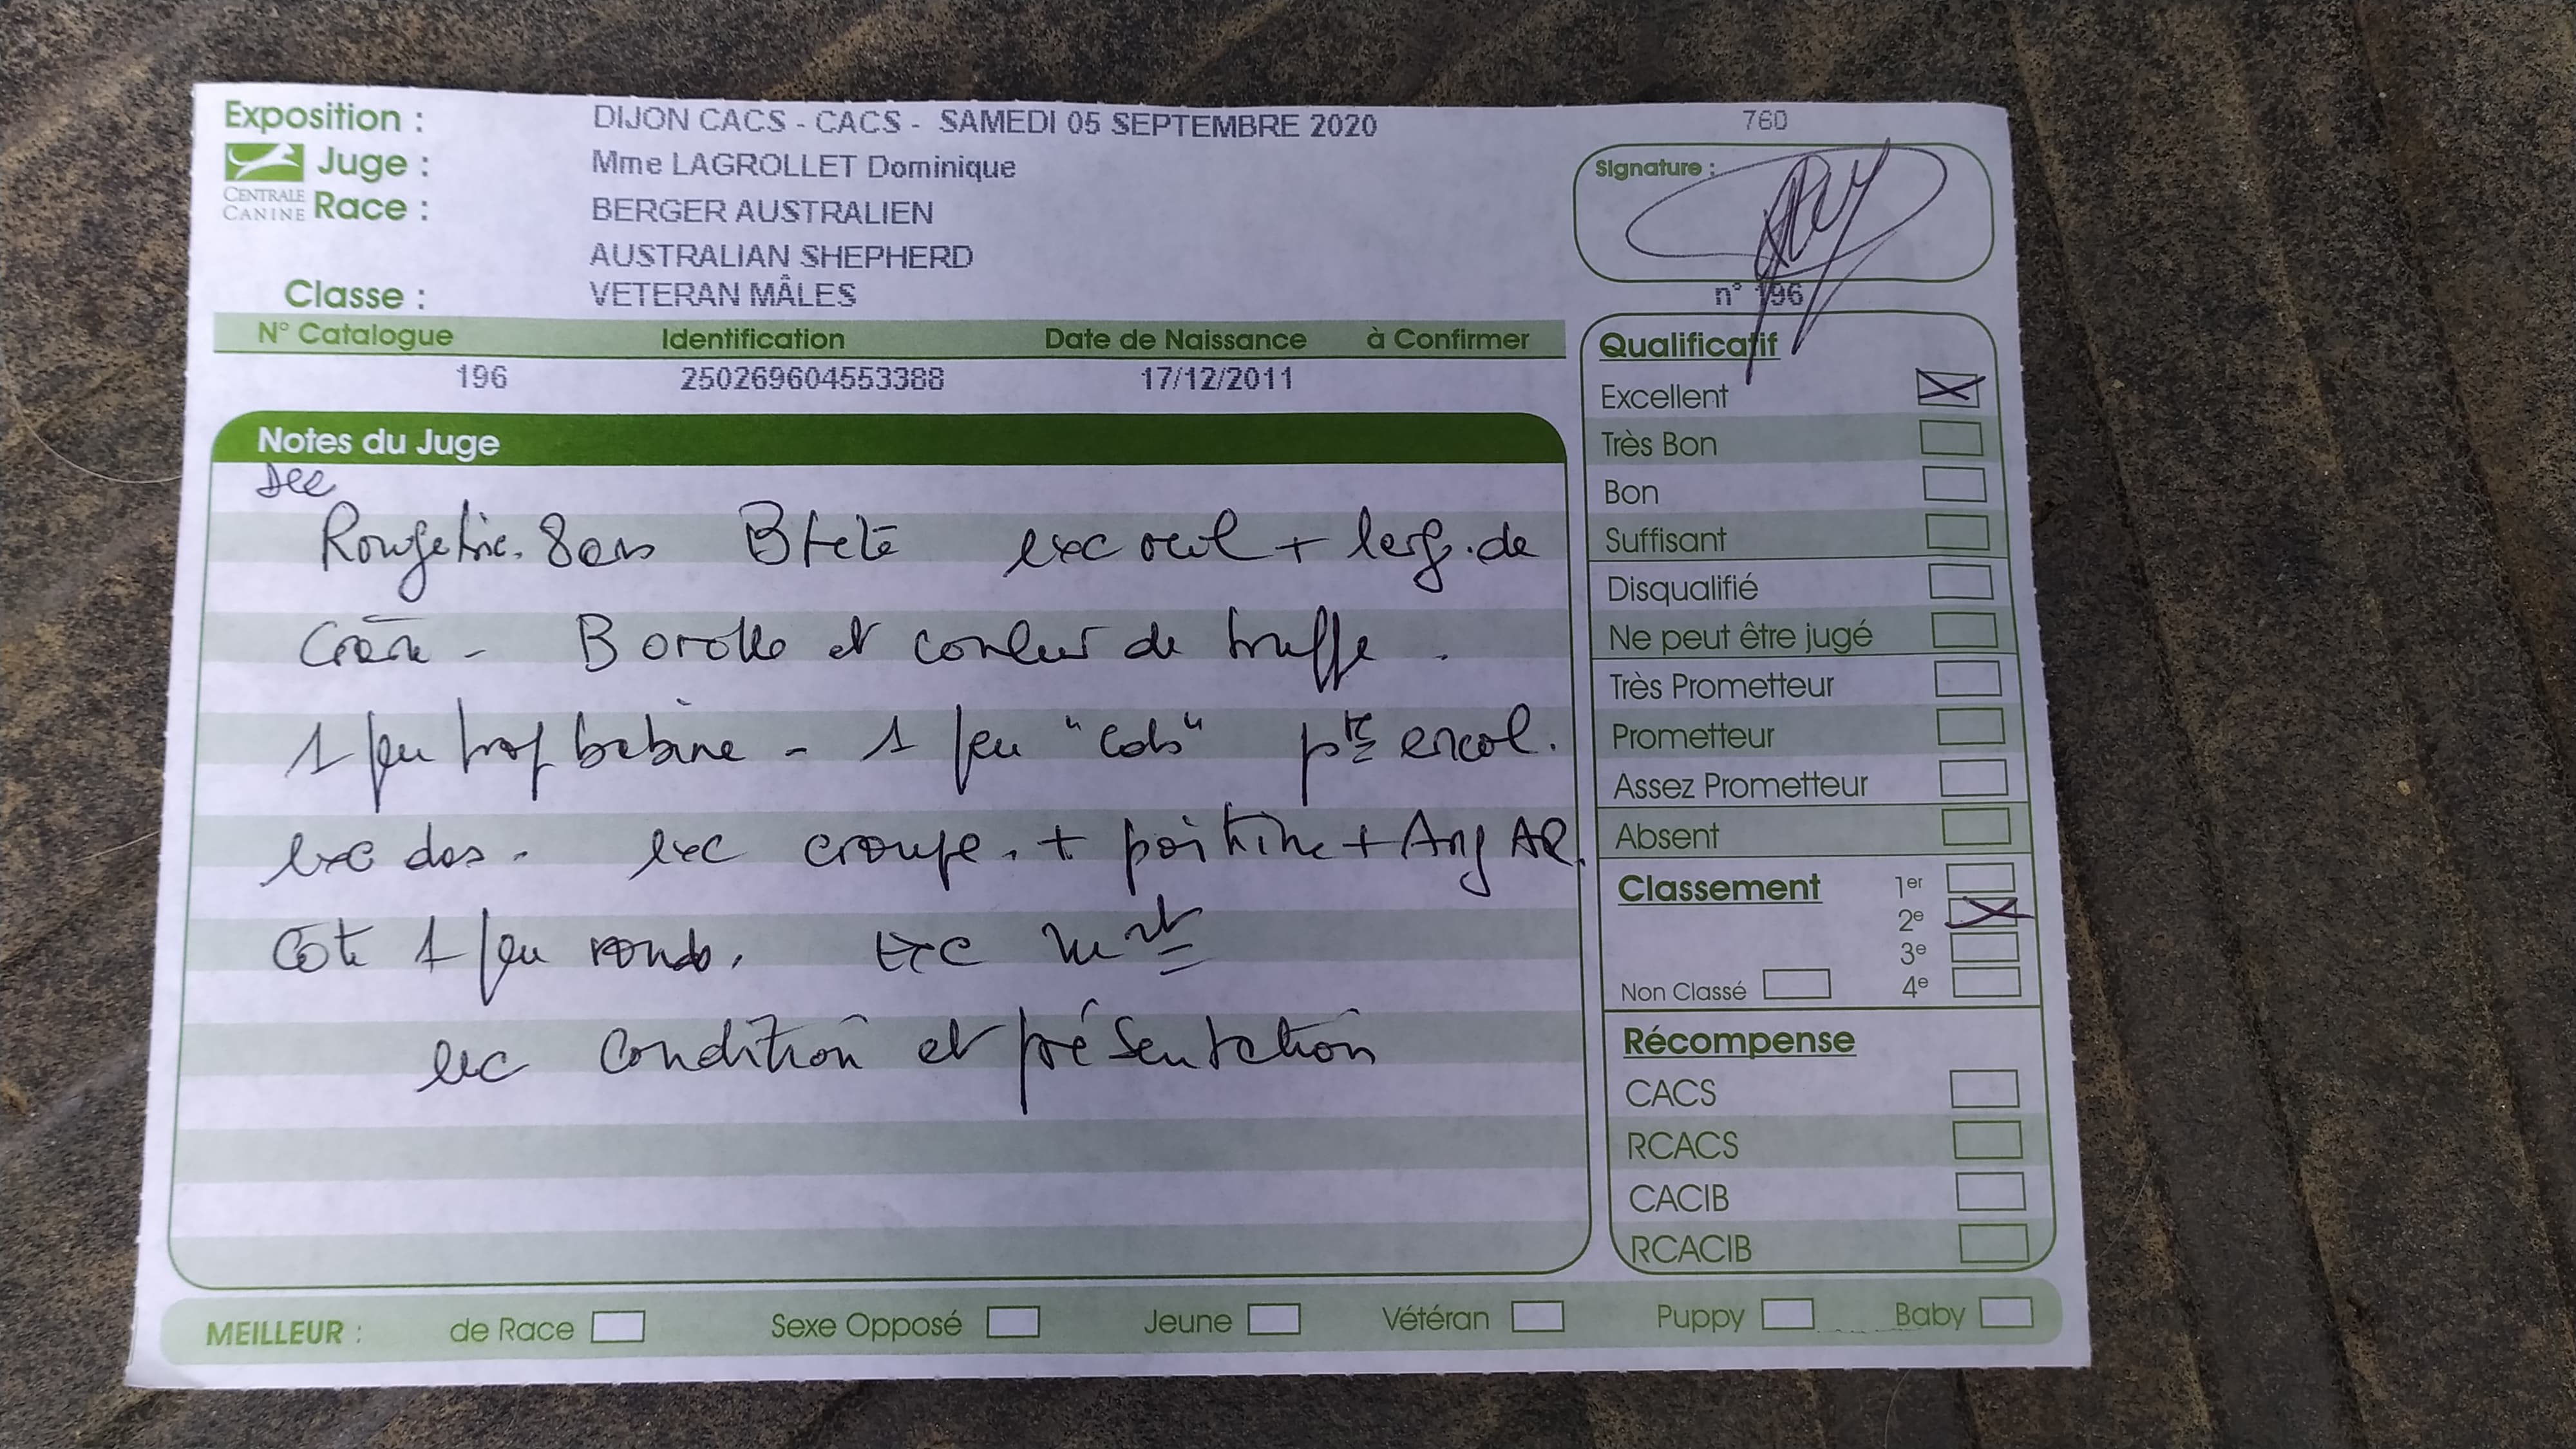 Exposition : DIJON CACS - CACS - SAMEDI 05 SEPTEMBRE 2020 760
Juge : Mme LAGROLLET Dominique
CENTRALE CANINE
Race : BERGER AUSTRALIEN
AUSTRALIAN SHEPHERD
Classe : VETERAN MÂLES
Signature :
n° 196
N° Catalogue Identification Date de Naissance à Confirmer
196 250269604553388 17/12/2011
Notes du Juge
Rouge tric. 8 ans B tete exc oeil + larg. de
Crâne - B oreille et couleur de truffe .
1 peu trop babine - 1 peu "cob" encol.
exc dos - exc croupe. + poitrine + Ang AR.
Côte 1 peu ronde. Exc mvt
exc condition et présentation
Qualificatif
Excellent
Très Bon
Bon
Suffisant
Disqualifié
Ne peut être jugé
Très Prometteur
Prometteur
Assez Prometteur
Absent
Classement 1er
2e
3e
Non Classé 4e
Récompense
CACS
RCACS
CACIB
RCACIB
MEILLEUR : de Race Sexe Opposé Jeune Vétéran Puppy Baby